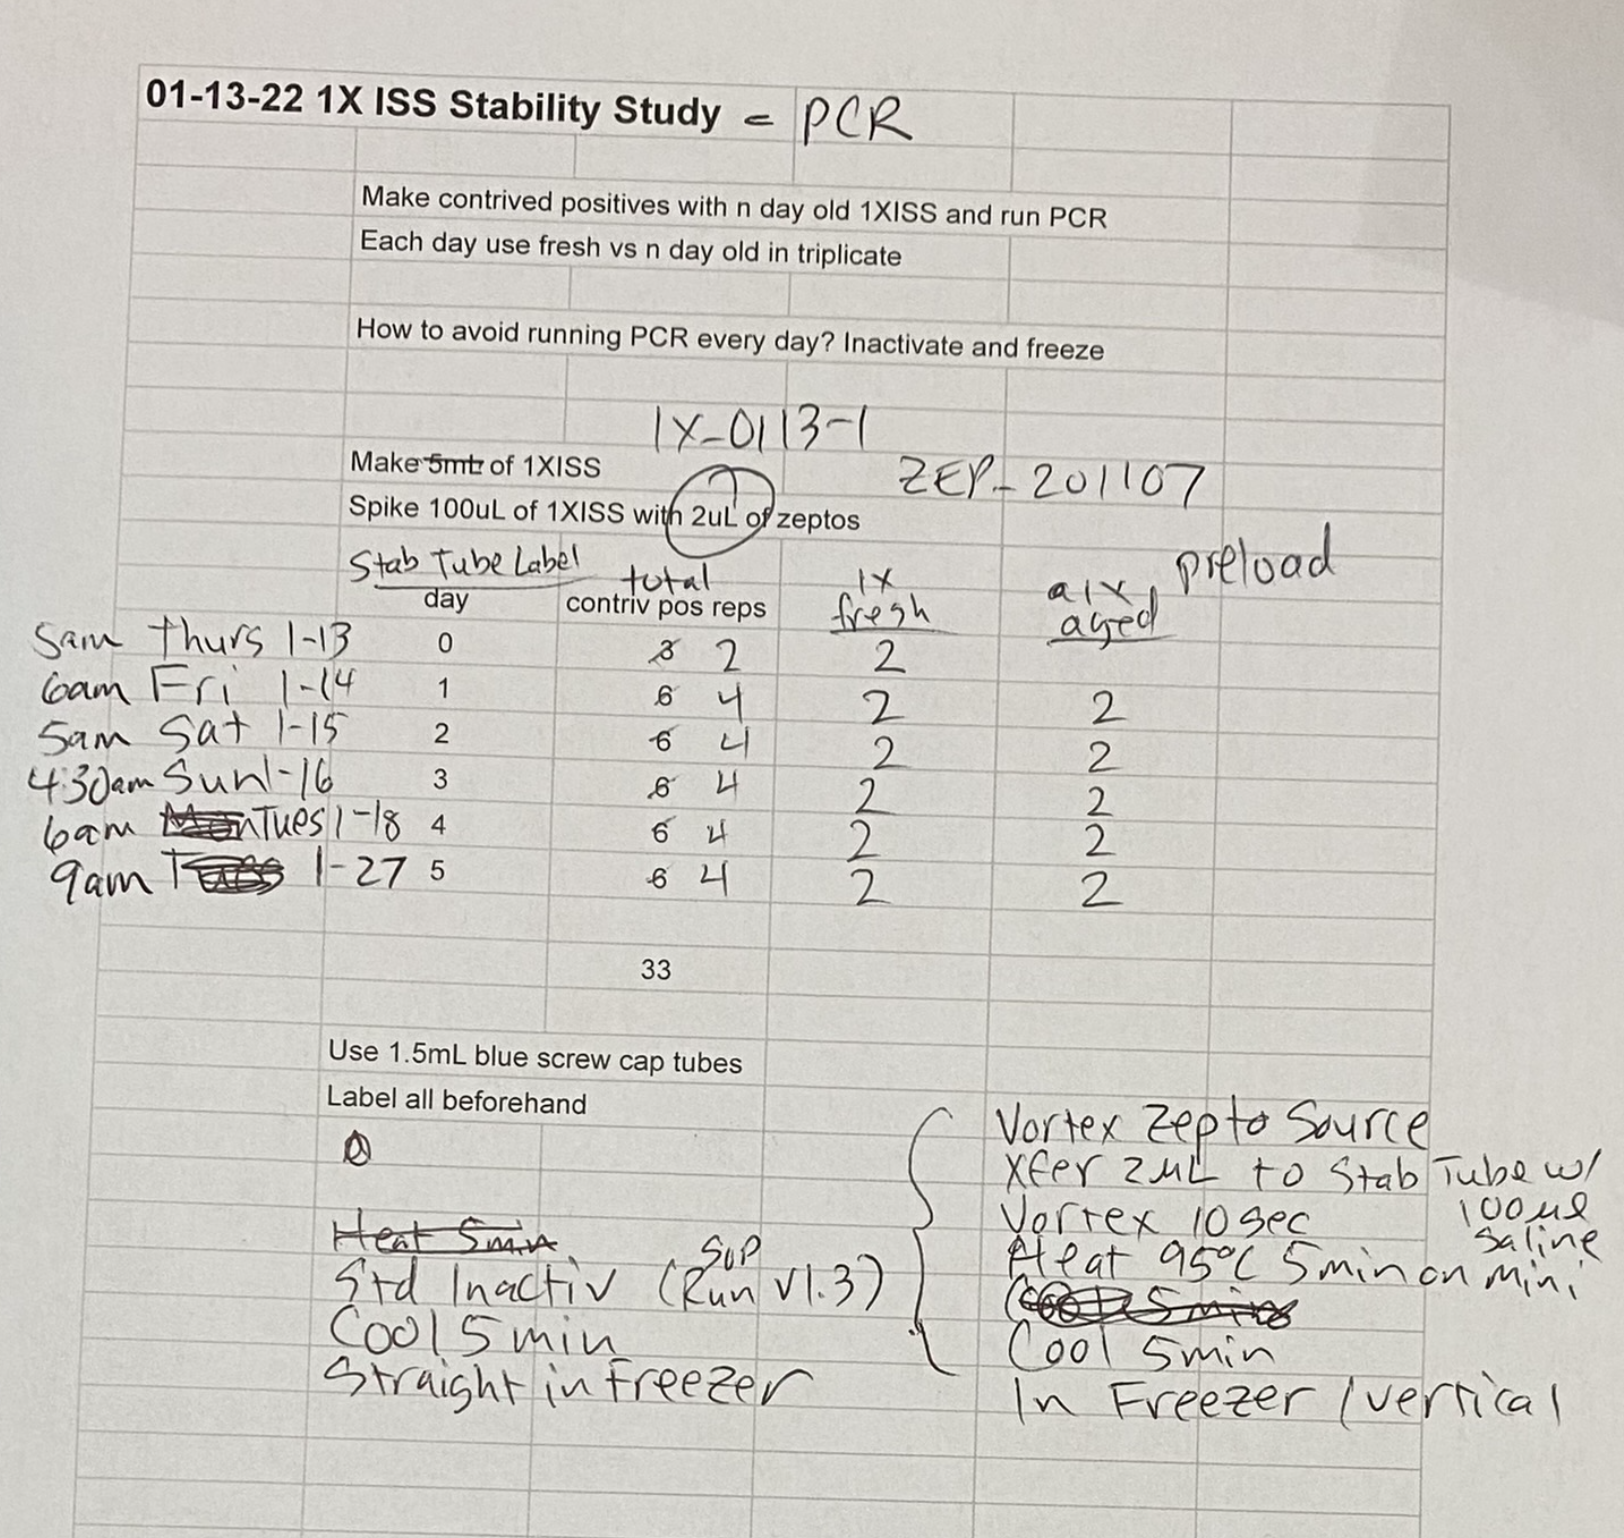 01-13-22 1X ISS Stability Study = PCR
Make contrived positives with n day old 1XISS and run PCR
Each day use fresh vs n day old in triplicate
How to avoid running PCR every day? Inactivate and freeze
1X-0113-1
Make 5mL of 1XISS
ZEP-201107
Spike 100uL of 1XISS with 2uL of zeptos
Stab Tube Label
day
total
contriv pos reps
1X
fresh
a1X
aged
preload
5am Thurs 1-13 0 3 2 2
6am Fri 1-14 1 6 4 2 2
5am Sat 1-15 2 6 4 2 2
4:30am Sun 1-16 3 6 4 2 2
6am Mon Tues 1-18 4 6 4 2 2
9am 1-27 5 6 4 2 2
33
Use 1.5mL blue screw cap tubes
Label all beforehand
Heat 5min
Std Inactiv (SOP Run v1.3)
Cool 5 min
Straight in Freezer
Vortex Zepto Source
Xfer 2µL to Stab Tube w/
100µl
saline
Vortex 10 sec
Heat 95°C 5min on mini
Cool 5 min
Cool 5min
In Freezer / vertical